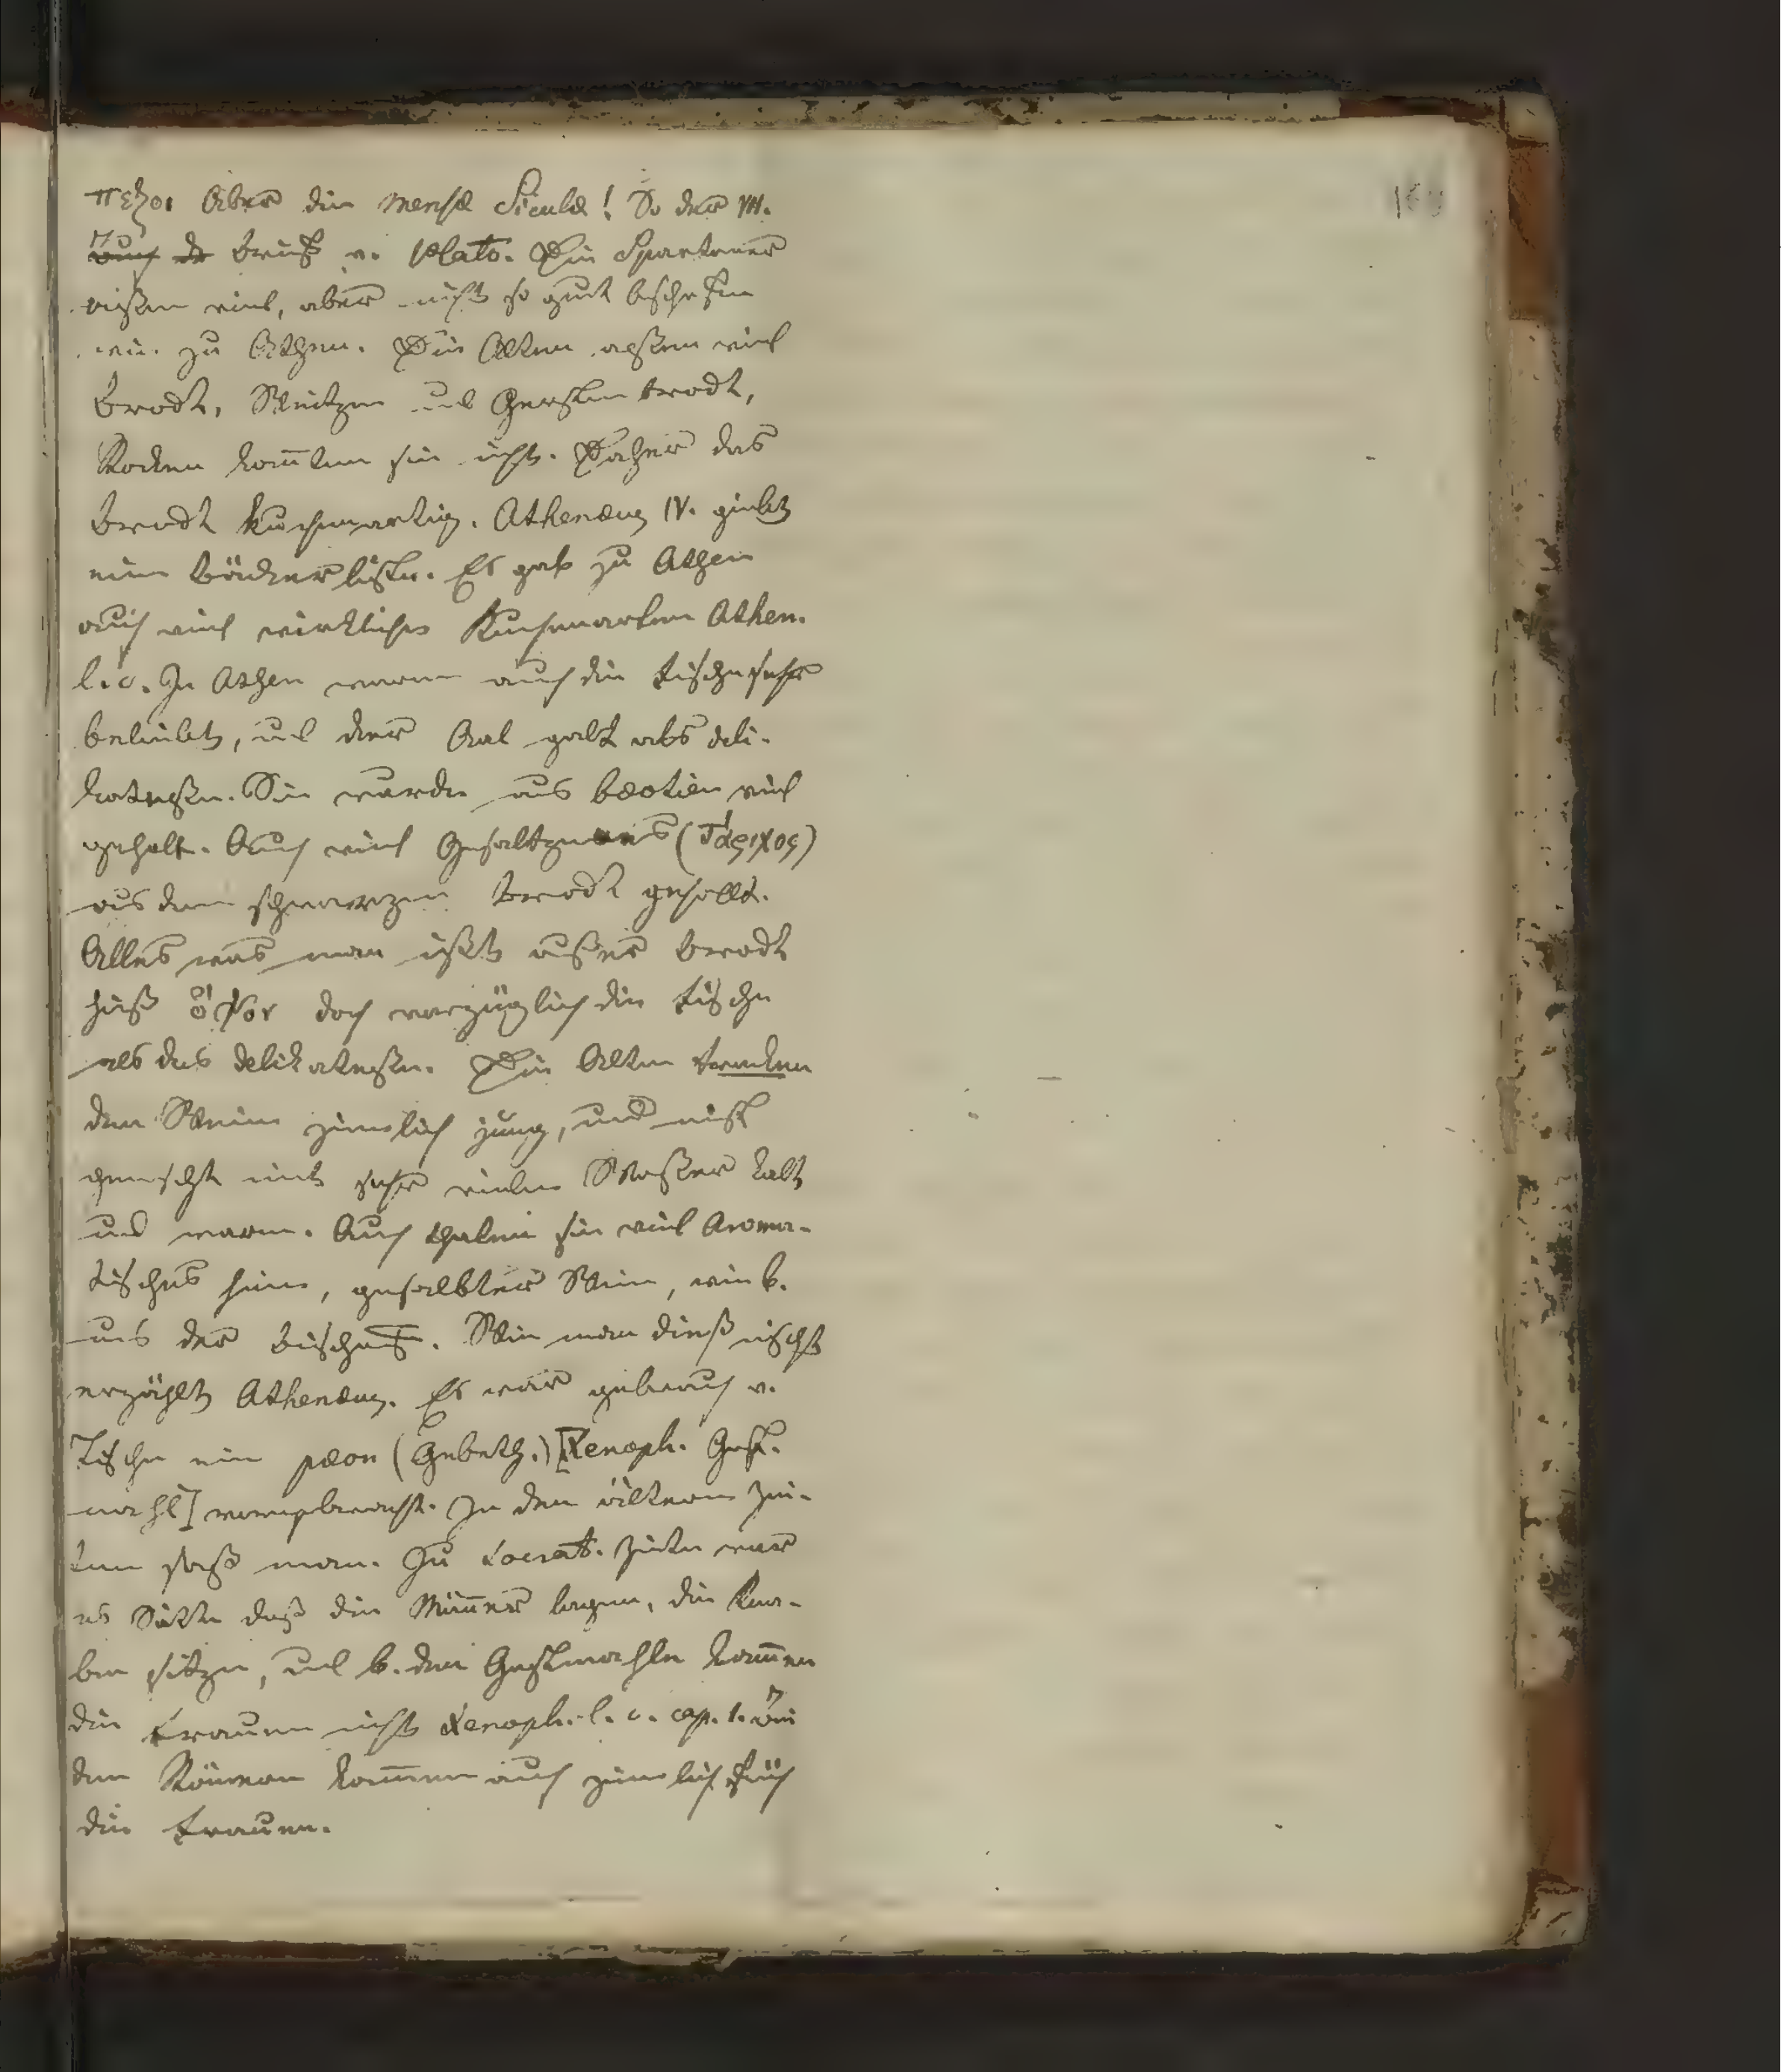 πεζοι Aber die mensæ Siculæ! So der VII.
Buch der Brief v. Plato. Die Spartaner
aßen viel, aber nicht so gut beschaffen
wie zu Athen. Die Alten aßen viel
Brodt, Weitzen und Gersten brodt,
Rocken kannten sie nicht. Daher das
Brodt kuchenartig. Athenæus IV. giebt
eine Bäckerliste. Es gab zu Athen
auch viel wirkliche Kuchenarten Athen.
l. c. In Athen waren auch die Fische sehr
beliebt, und der Aal galt als deli-
katesse. Sie wurde aus Bœotien viel
geholt. Auch viel Gesaltzenes (Τάριχος)
aus dem schwarzen geholt.
Alles was man ißt außer Brodt
hieß ὄψον doch vorzüglich die Fische
als das delikateste. Die Alten trancken
den Wein ziemlich jung, und meist
gemischt mit sehr vielen Waßer kalt
und warm. Auch thaten sie viel Aroma-
tisches hinein, gesalbter Wein, wie b.
uns der Bischoff. Wie man dieß mischt
erzählt Athenæus. Es war gebrauch v.
Tische ein pæon (Gebeth.) [Xenoph. Gast-
mahl] vorgebracht. In den ältern Zei-
ten saß man. Zu Socrat. Zeiten war
es Sitte daß die Männer lagen, die Kna-
ben sitzen, und b. den Gastmahlen kamen
die Frauen nicht Xenoph. l. c. cap. 1. Bei
den Römern kommen auch ziemlich früh
die Frauen.